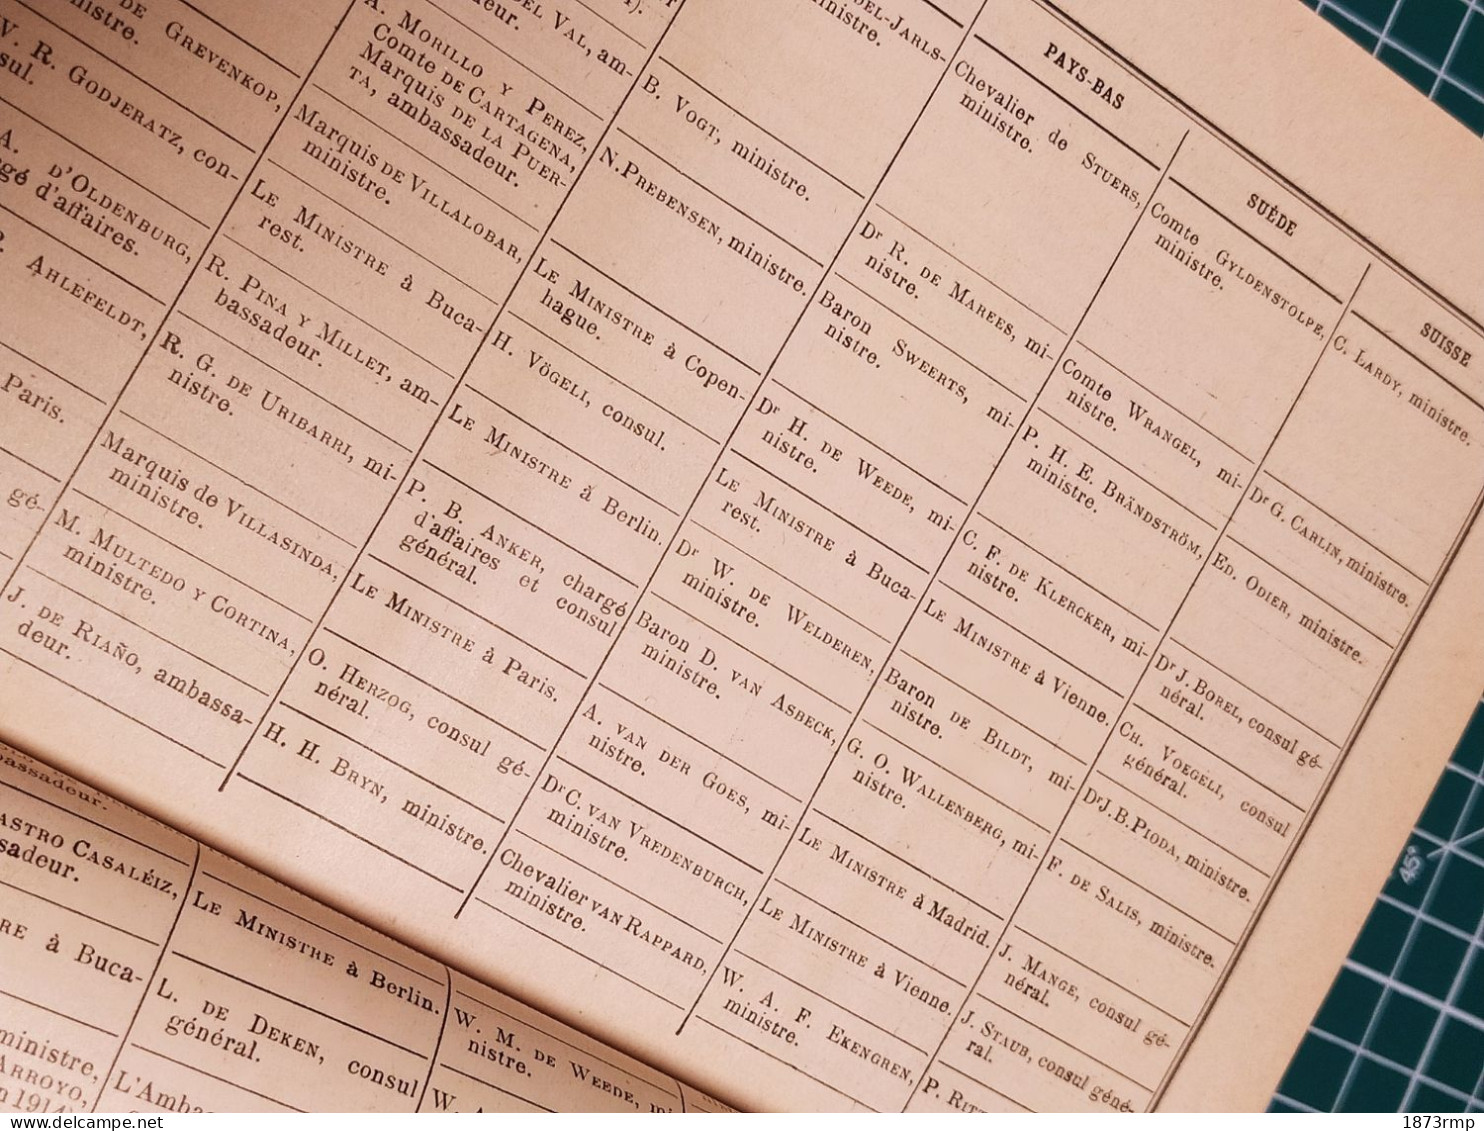 DE GREVENKOP,
nistre.
R. GODJERATZ, con-
sul.
A. D'OLDENBURG,
gé d'affaires.
AHLEFELDT,
Paris.
gé-
DEL VAL, am-
A. MORILLO Y PEREZ,
Comte DE CARTAGENA,
Marquis DE LA PUER-
TA, ambassadeur.
Marquis DE VILLALOBAR,
ministre.
LE MINISTRE à Buca-
rest.
R. PINA Y MILLET, am-
bassadeur.
R. G. DE URIBARRI, mi-
nistre.
Marquis de VILLASINDA,
ministre.
M. MULTEDO Y CORTINA,
ministre.
J. DE RIAÑO, ambassa-
deur.
B. VOGT, ministre.
N. PREBENSEN, ministre.
LE MINISTRE à Copen-
hague.
H. VÖGELI, consul.
LE MINISTRE à Berlin.
P. B. ANKER, chargé
d'affaires et consul
général.
LE MINISTRE à Paris.
O. HERZOG, consul gé-
néral.
H. H. BRYN, ministre.
DEL-JARLS-
ministre.
PAYS-BAS
Chevalier de STUERS,
ministre.
Dr R. DE MAREES, mi-
nistre.
Baron SWEERTS, mi-
nistre.
Dr H. DE WEEDE, mi-
nistre.
LE MINISTRE à Buca-
rest.
Dr W. DE WELDEREN,
ministre.
Baron D. VAN ASBECK,
ministre.
A. VAN DER GOES, mi-
nistre.
Dr C. VAN VREDENBURCH,
ministre.
Chevalier VAN RAPPARD,
ministre.
SUÈDE
Comte GYLDENSTOLPE,
ministre.
Comte WRANGEL, mi-
nistre.
P. H. E. BRÄNDSTRÖM,
ministre.
C. F. DE KLERCKER, mi-
nistre.
LE MINISTRE à Vienne.
Baron DE BILDT, mi-
nistre.
G. O. WALLENBERG, mi-
nistre.
LE MINISTRE à Madrid.
LE MINISTRE à Vienne.
W. A. F. EKENGREN,
ministre.
SUISSE
C. LARDY, ministre.
Dr G. CARLIN, ministre.
ED. ODIER, ministre.
Dr J. BOREL, consul gé-
néral.
CH. VOEGELI, consul
général.
Dr J. B. PIODA, ministre.
F. DE SALIS, ministre.
J. MANGE, consul gé-
néral.
J. STAUB, consul géné-
ral.
P. RITT
bassadeur.
ASTRO CASALÉIZ,
sadeur.
RE à Buca-
ministre,
ARROYO,
n 1914)
LE MINISTRE à Berlin.
L. DE DEKEN, consul
général.
L'Ambas
W. M. DE WEEDE, mi-
nistre.
45°
1873rmp
delcampe.net